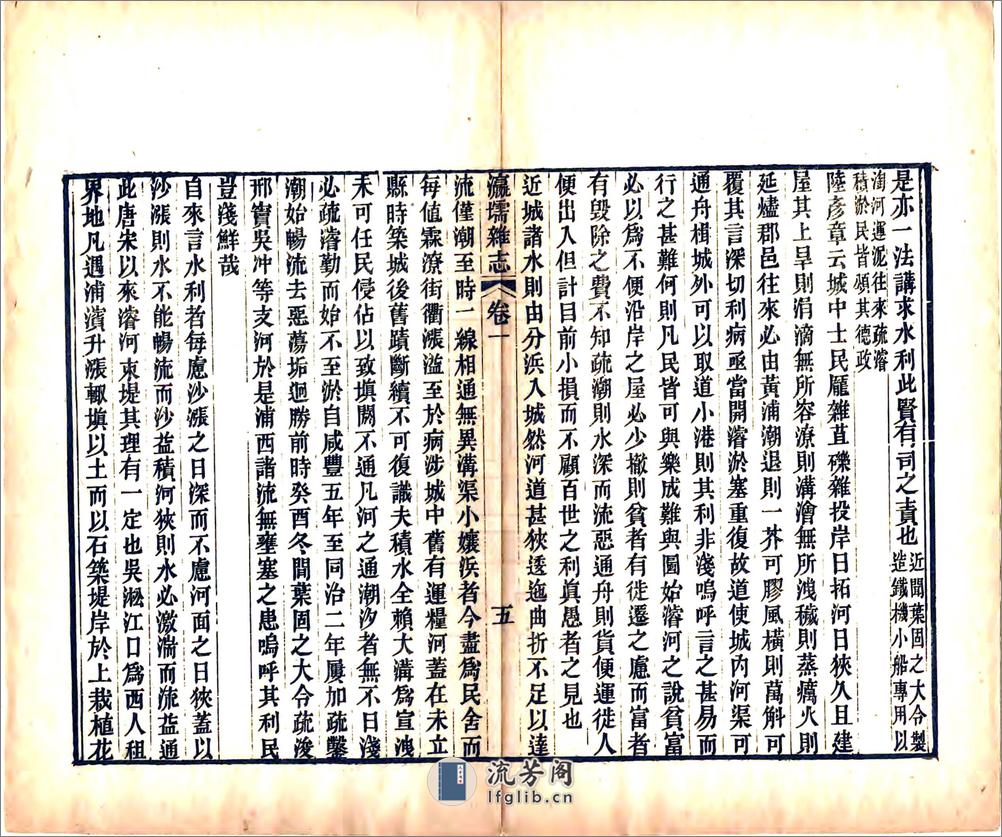 是亦一法講求水利此賢有司之責也近聞葉固之大令製造鐵機小船專用以
淘河運泥往來疏濬積淤民皆頌其德政
陸彥章云城中士民厖雜苴礫雜投岸日拓河日狹久且建
屋其上旱則涓滴無所容潦則溝澮無所洩穢則蒸癘火則
延燼郡邑往來必由黃浦潮退則一芥可膠風橫則萬斛可
覆其言深切利病亟當開濬淤塞重復故道使城內河渠可
通舟楫城外可以取道小港則其利非淺嗚呼言之甚易而
行之甚難何則凡民皆可與樂成難與圖始濬河之說貧富
必以爲不便沿岸之屋必少撤則貧者有徙遷之慮而富者
有毀除之費不知疏潮則水深而流惡通舟則貨便運徙人
便出入但計目前小損而不顧百世之利眞愚者之見也
近城諸水則由分浜入城然河道甚狹透迤曲折不足以達
瀛壖雜志
卷一
五
流僅潮至時一線相通無異溝渠小孃浜者今盡爲民舍而
每値霖潦街衢漲溢至於病涉城中舊有運糧河蓋在未立
縣時築城後舊蹟斷續不可復識夫積水全賴大溝爲宣洩
未可任民侵佔以致塡閼不通凡河之通潮汐者無不日淺
必疏濬勤而始不至淤自咸豐五年至同治二年屢加疏鑿
潮始暢流去惡蕩垢迥勝前時癸酉冬間葉固之大令疏浚
邢竇吳冲等支河於是浦西諸流無壅塞之患嗚呼其利民
豈淺鮮哉
自來言水利者每慮沙漲之日深而不慮河面之日狹蓋以
沙漲則水不能暢流而沙益積河狹則水必激湍而流益通
此唐宋以來濬河束堤其理有一定也吳淞江口爲西人租
界地凡遇浦濱升漲輙塡以土而以石築堤岸於上栽植花
流芳阁
lfglib.cn